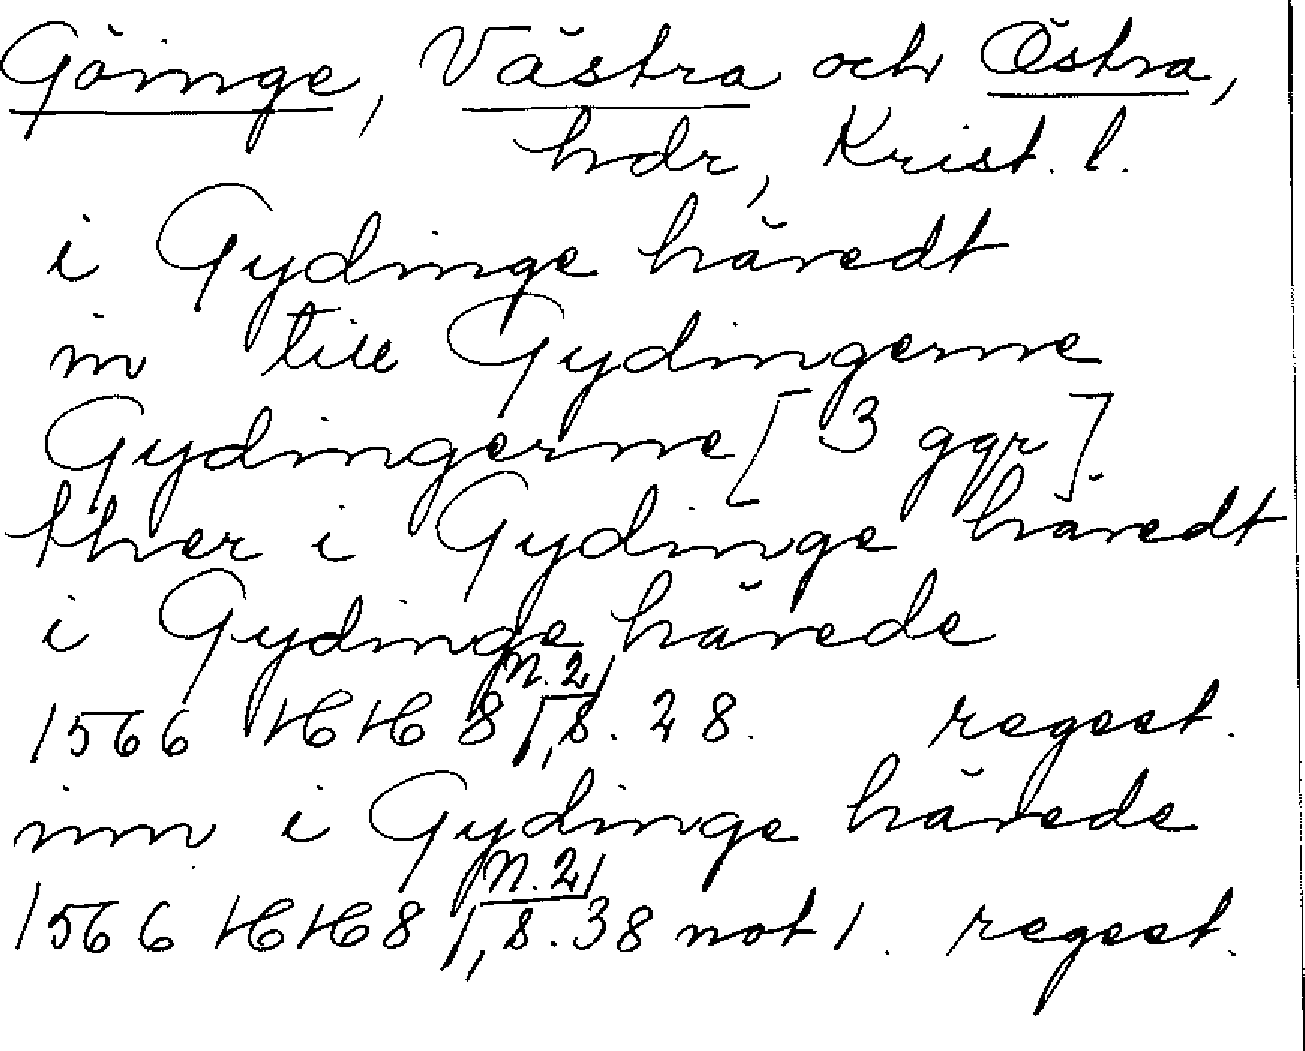 Göinge, Västra och Östra,
hdr, Krist. l.
i Gydinge häredt
in till Gydingerne
Gydingerne [3 ggr]
ther i Gydinge häredt
i Gydinge härede
1566 HH 8 n. 2, s. 28. regest.
inn i Gydinge härede
1566 HH 8 n. 2, s. 38 not 1. regest.